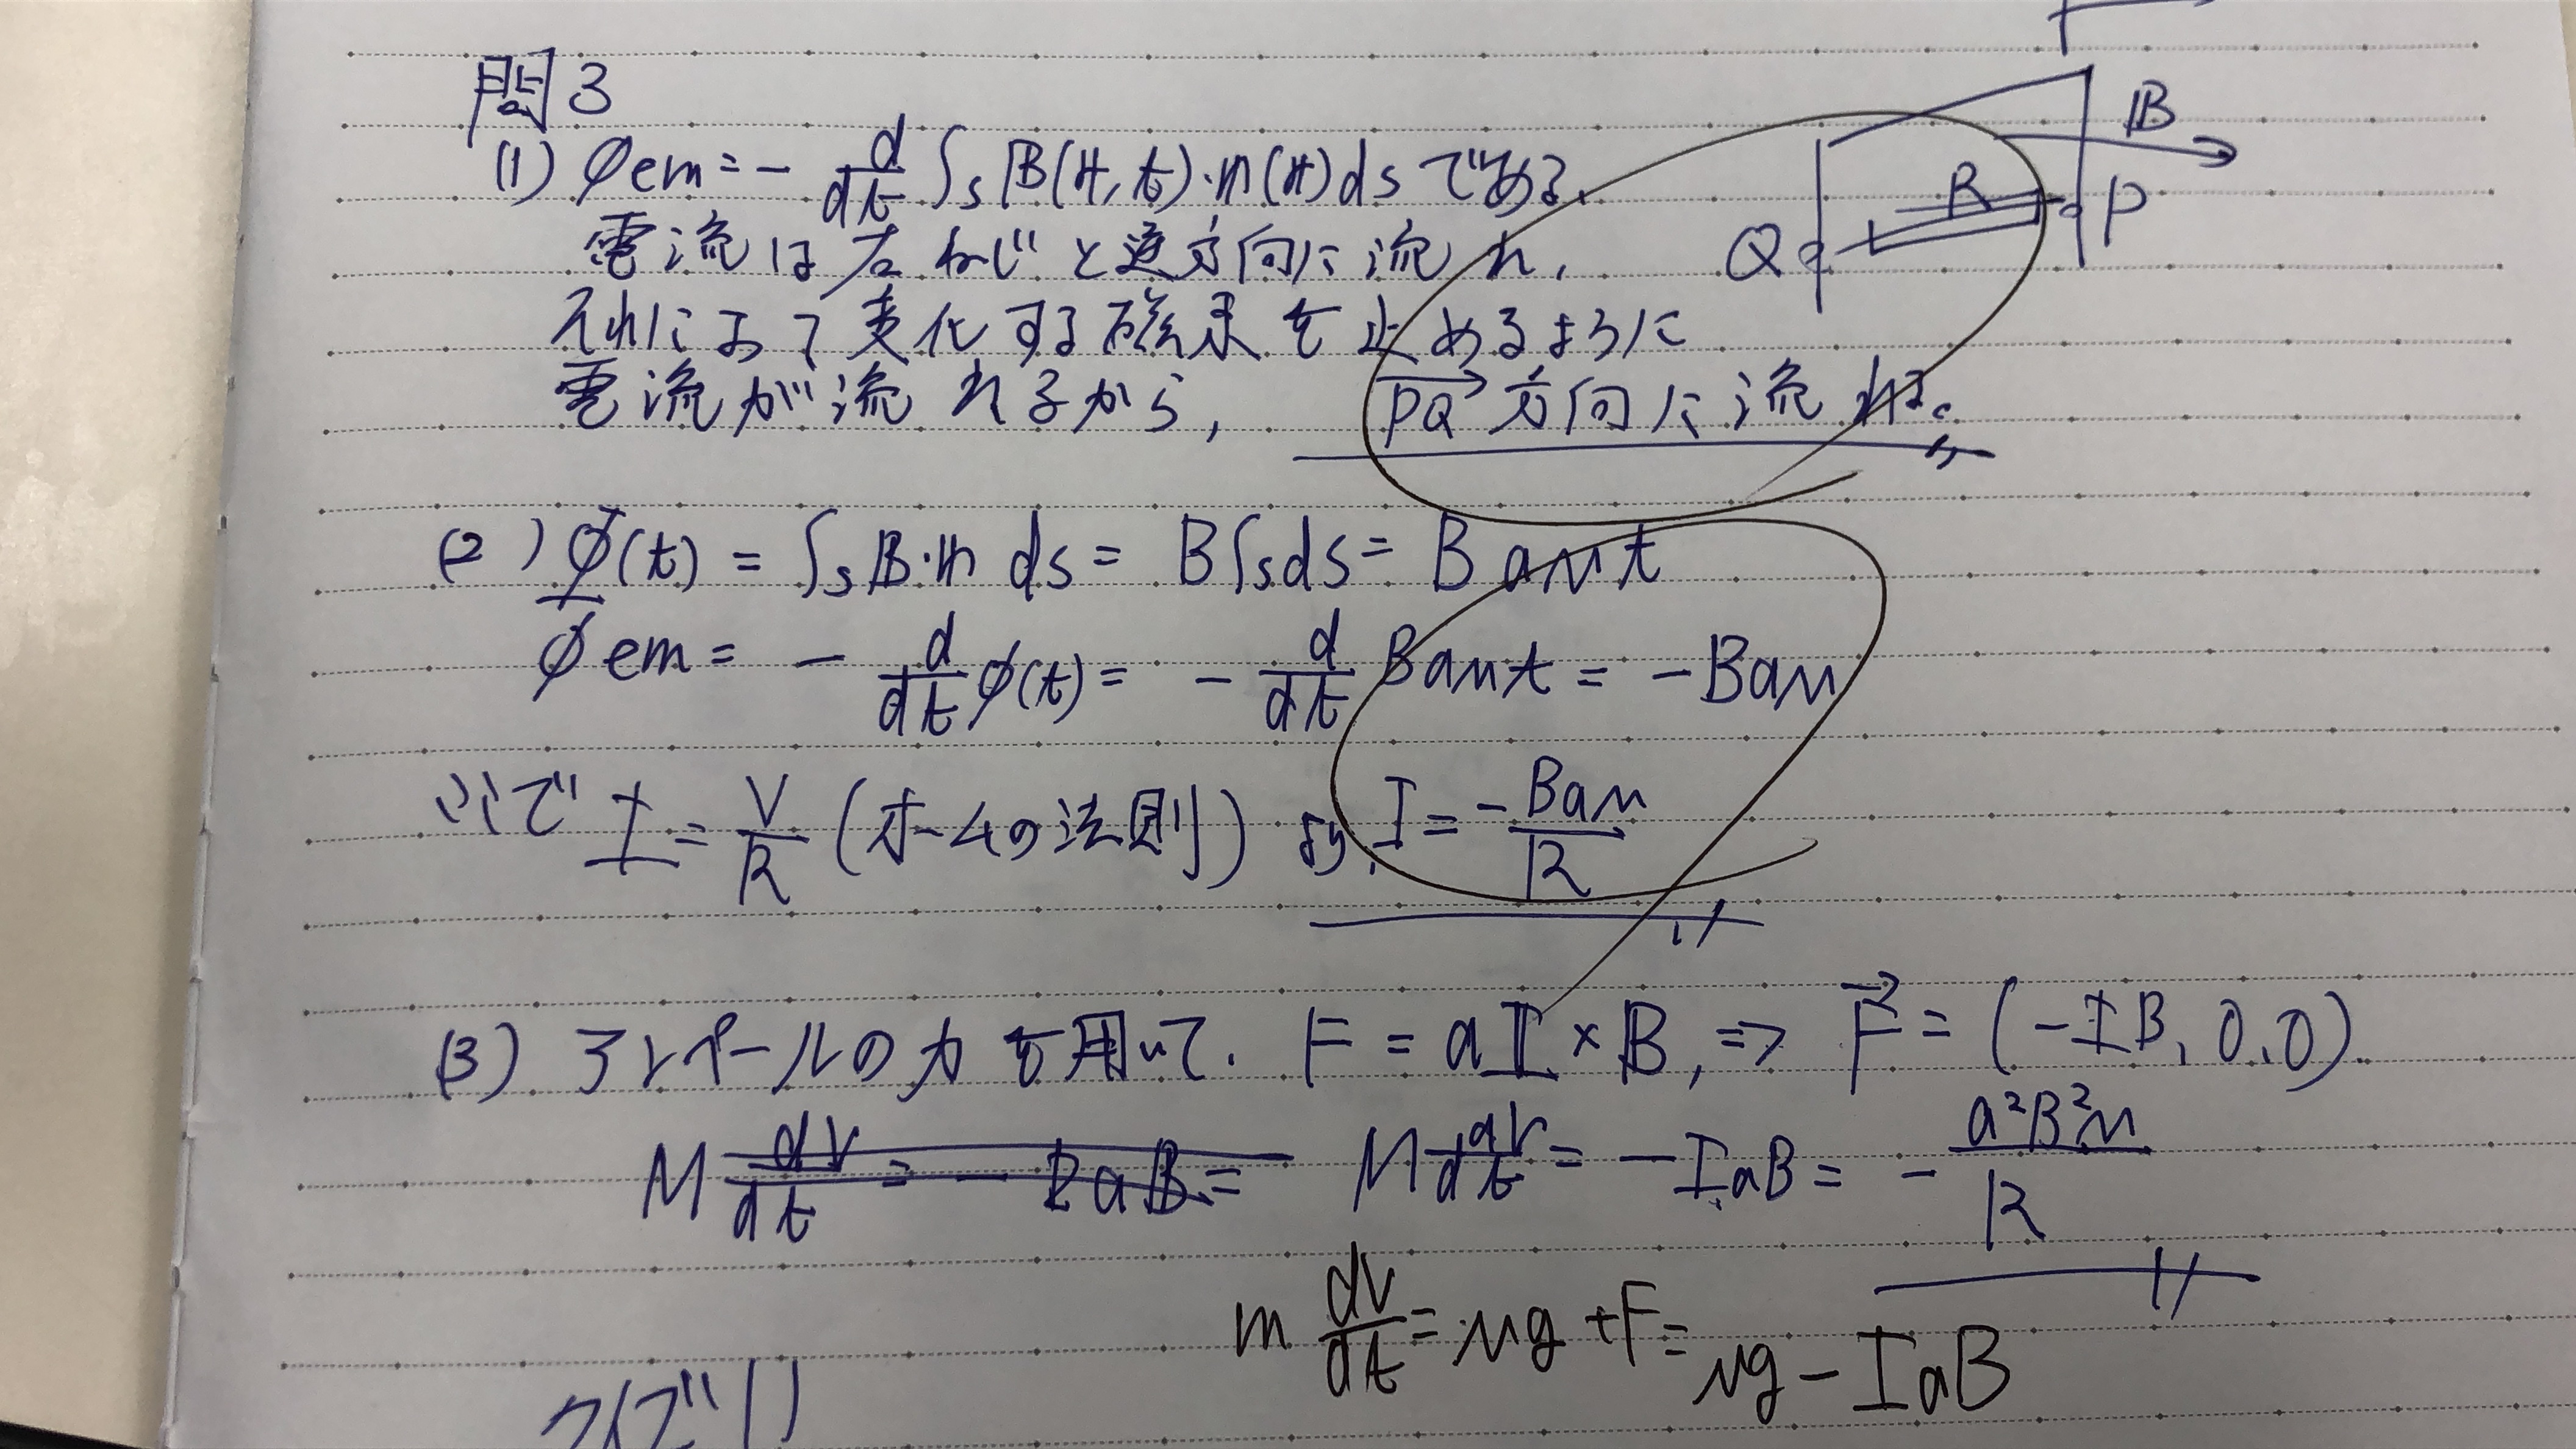 問3
(1) φem = - d/dt ∫s B(r, t)・n(r) ds である。
電流は右ねじと逆方向に流れ、
それによって変化する磁束を止めるように
電流が流れるから, PQ方向に流れる。
B
R
Q
P
(2) Φ(t) = ∫s B・n ds = B∫s ds = B a u t
φem = - d/dt φ(t) = - d/dt B a u t = - B a u
ここで I = V/R (オームの法則) より, I = - Bau/R
(3) アンペールの力を用いて. F = aI × B, ⇒ F = (-IB, 0, 0).
M dv/dt = - IaB = M dv/dt = - IaB = - a²B²u/R
m dv/dt = Mg + F = Mg - IaB
クイズ11